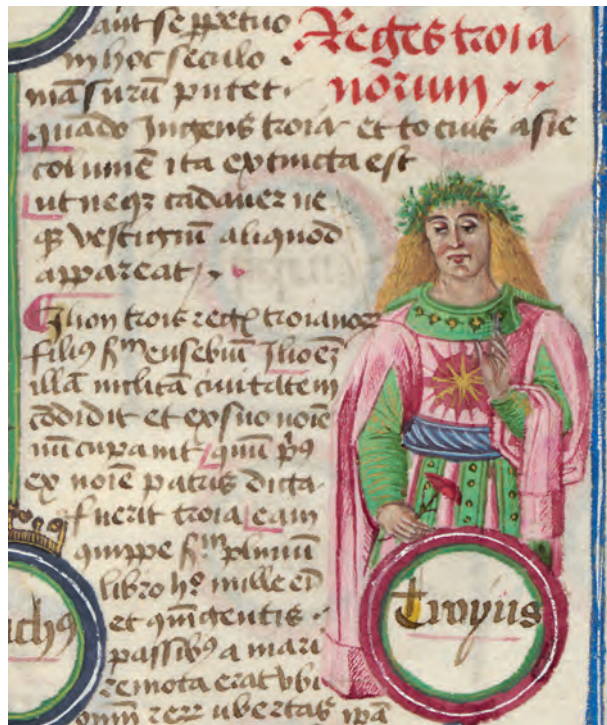 aut se ꝑpetuo
in hoc seculo
mãsurũ putet
Reges troia
norum
quãdo Ingens troia et tocius asie
columẽ ita extincta est
ut neqꝫ cadauer ne
qꝫ vestigiũ aliquod
appareat
Ilion trois regꝭ troianoꝝ
filiꝯ s̃m eusebiũ Ilioẽꝫ
illã inclitã ciuitatem
cõdidit et ex suo noĩe
nũcupauit quũ pꝰ
ex noĩe patris dicta
fuerit troia eam
quippe s̃m pliniũ
libro hꝰ mille
et quĩgentis
passibꝯ a mari
remota erat vbi
omĩ reꝝ ubertas ipã
chꝯ
Troyus